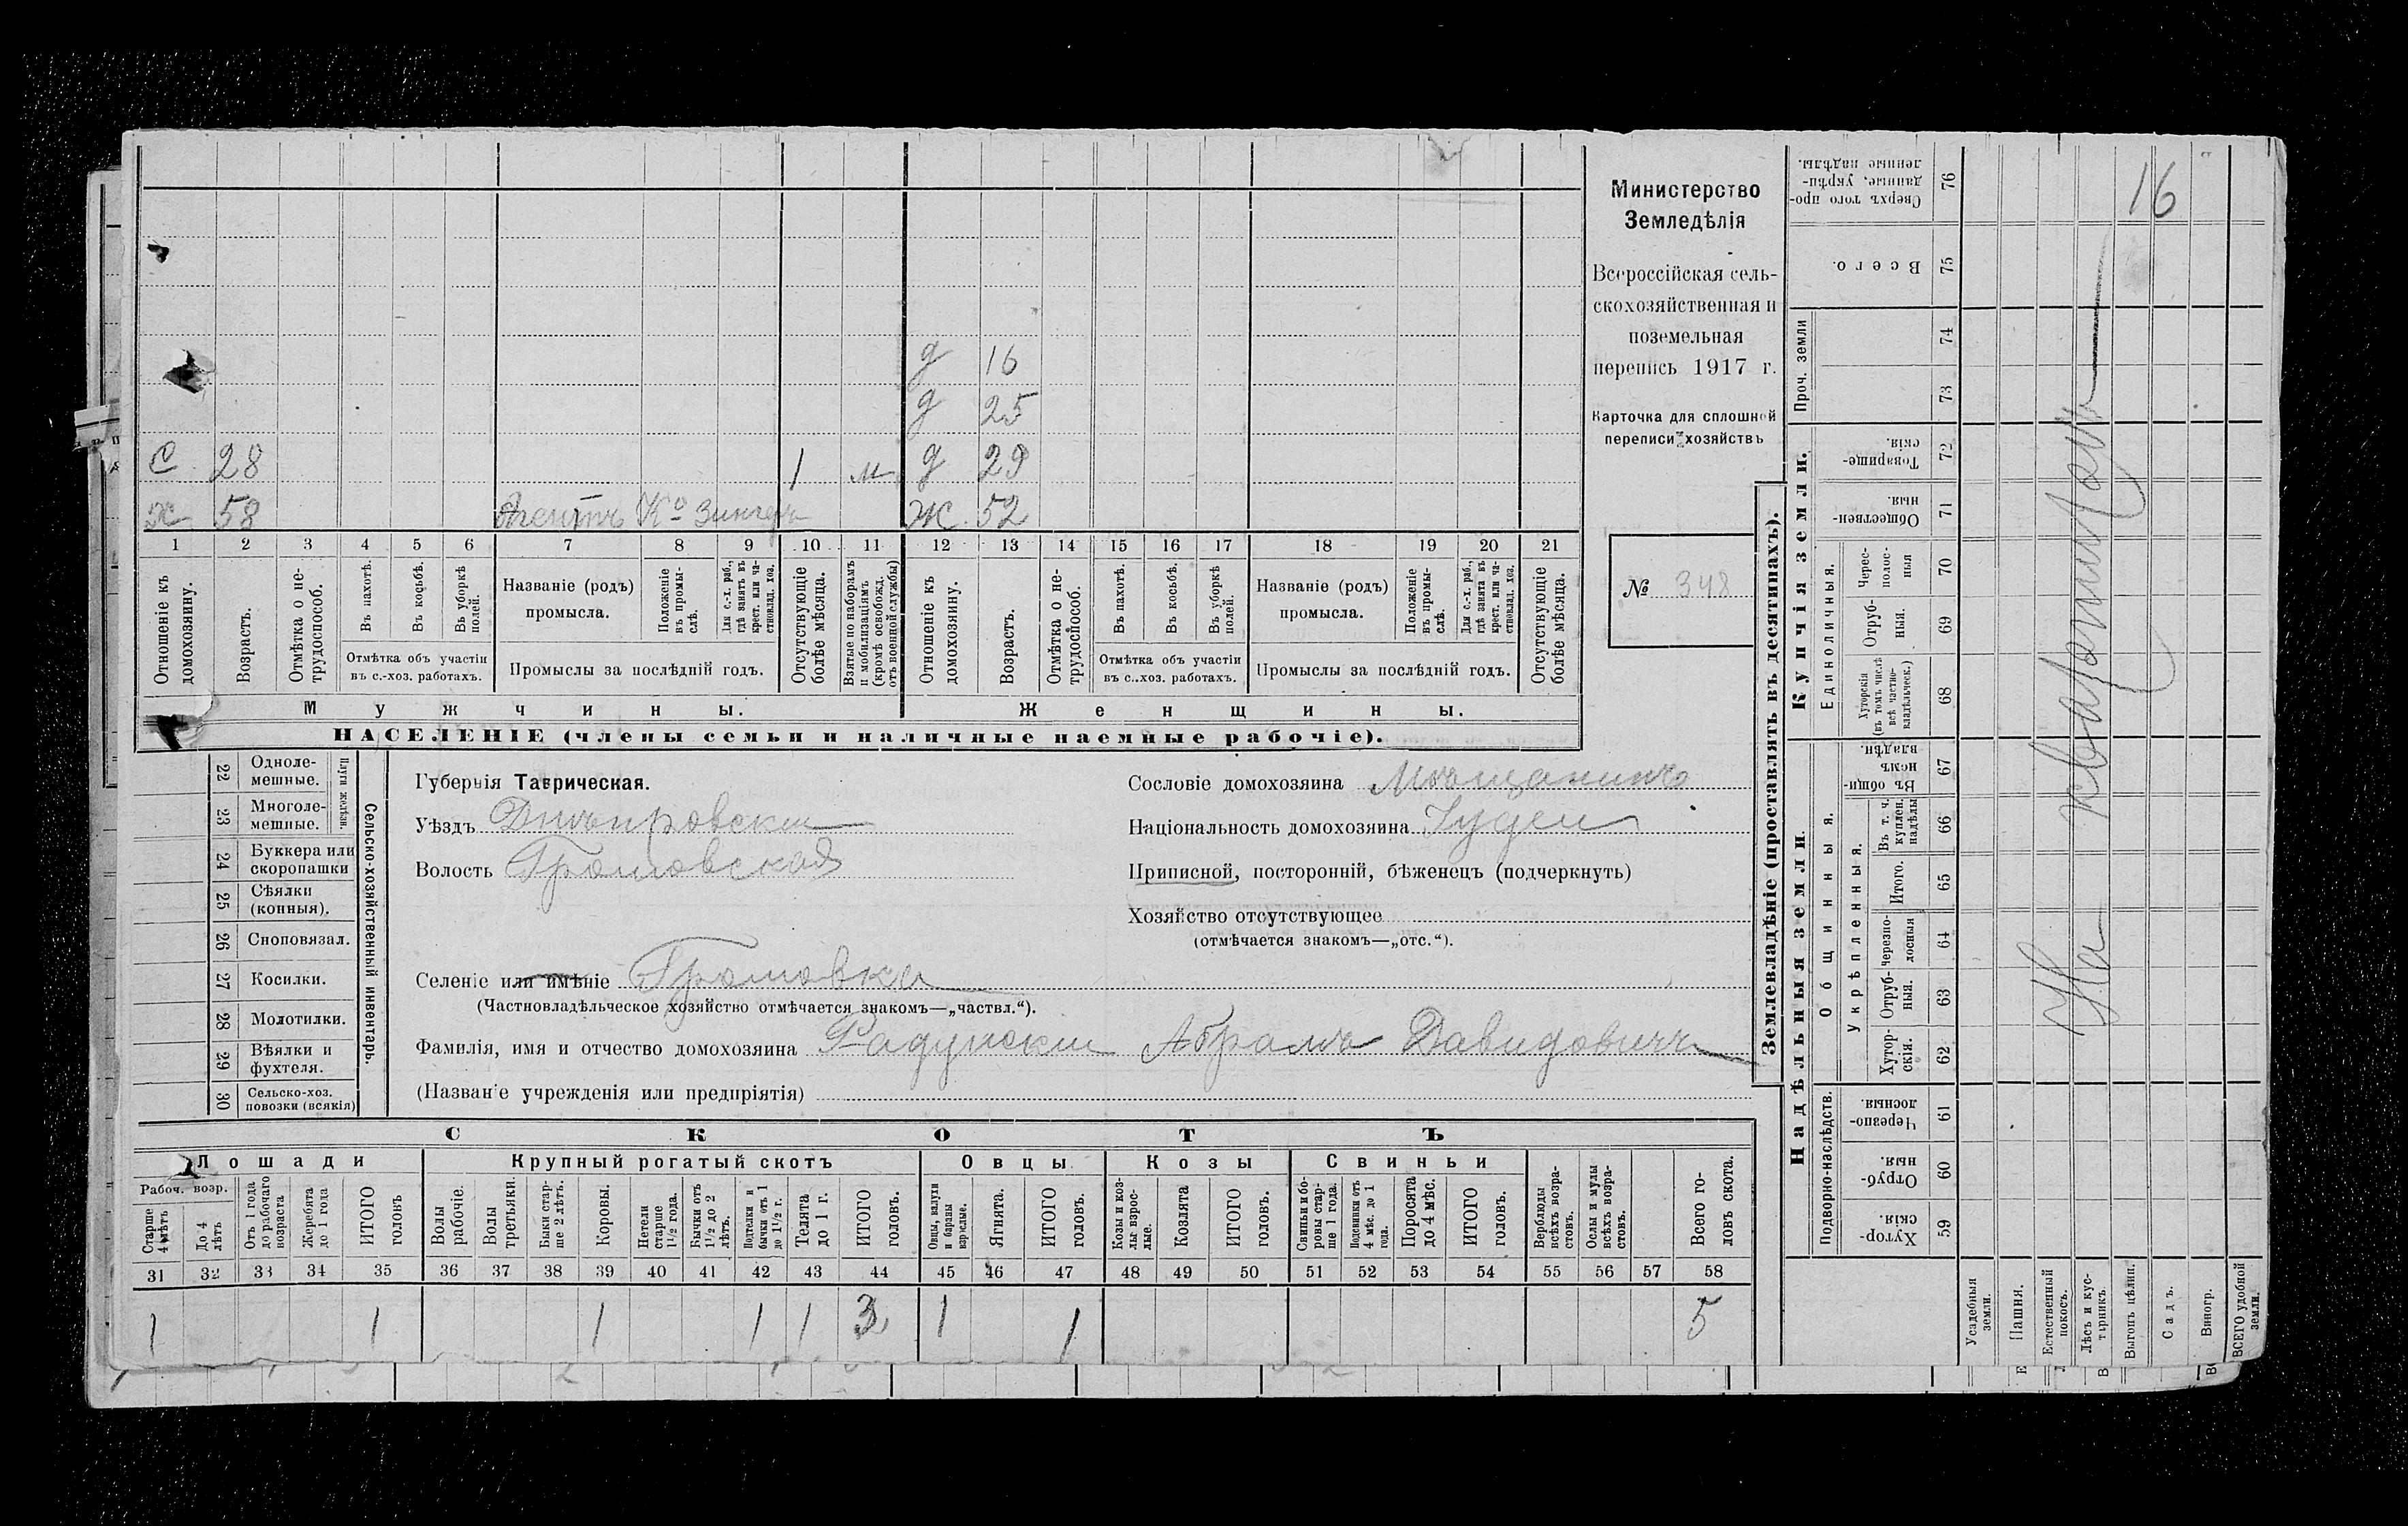 16
д 16
д 25
С 28 1 м д 29
х 58 Агентъ Ко Зингеръ Ж 52
1 2 3 4 5 6 7 8 9 10 11 12 13 14 15 16 17 18 19 20 21
Отношеніе къ домохозяину.
Возрастъ.
Отмѣтка о нетрудоспособ.
Въ пахотѣ.
Въ косьбѣ.
Въ уборкѣ полей.
Отмѣтка объ участіи
въ с.-хоз. работахъ.
Названіе (родъ)
промысла.
Положеніе въ промы-слѣ.
Для с.-х. раб., гдѣ занятъ въ крест. или ча-стновлад. хоз.
Промыслы за послѣдній годъ.
Отсутствующіе болѣе мѣсяца.
Взятые по наборамъ и мобилизаціямъ (кромѣ освобожд. отъ военной службы)
Отношеніе къ домохозяину.
Возрастъ.
Отмѣтка о не-трудоспособ.
Въ пахотѣ.
Въ косьбѣ.
Въ уборкѣ полей.
Отмѣтка объ участіи
въ с..хоз. работахъ.
Названіе (родъ)
промысла.
Положеніе въ промы-слѣ.
Для с.-х. раб., гдѣ занята въ крест. или ча-стновлад. хоз.
Промыслы за послѣдній годъ.
Отсутствующіе болѣе мѣсяца.
Мужчины.
Женщины.
НАСЕЛЕНІЕ (члены семьи и наличные наемные рабочіе).
Министерство
Земледѣлія
Всероссійская сель-
скохозяйственная и
поземельная
перепись 1917 г.
Карточка для сплошной
переписи хозяйствъ
№ 348
22 Одноле-мешные.
23 Многоле-мешные.
Плуги желѣзн.
24 Буккера или скоропашки
25 Сѣялки (конныя).
26 Сноповязал.
27 Косилки.
28 Молотилки.
29 Вѣялки и фухтеля.
30 Сельско-хоз. повозки (всякія)
Сельско-хозяйственный инвентарь.
Губернія Таврическая.
Уѣздъ Днѣпровский
Волость Громовская
Селеніе или имѣніе Громовка
(Частновладѣльческое хозяйство отмѣчается знакомъ—„частвл.“).
Фамилія, имя и отчество домохозяина Радунский Абрамъ Давидовичъ
(Названіе учрежденія или предпріятія)
Сословіе домохозяина Мѣщанинъ
Національность домохозяина Іудей
Приписной, посторонній, бѣженецъ (подчеркнуть)
Хозяйство отсутствующее
(отмѣчается знакомъ—„отс.“).
СКОТЪ
Лошади Крупный рогатый скотъ Овцы Козы Свиньи
Рабоч. возр.
Старше 4 лѣтъ
До 4 лѣтъ
Отъ 1 года до рабочаго возраста
Жеребята до 1 года
ИТОГО головъ
Волы рабочіе.
Волы третьяки.
Быки стар-ше 2 лѣтъ.
Коровы.
Нетели старше 1½ года.
Бычки отъ 1½ до 2 лѣтъ.
Подтелки и бычки отъ 1 до 1½ г.
Телята до 1 г.
ИТОГО головъ.
Овцы, валухи и бараны взрослые.
Ягнята.
ИТОГО головъ.
Козы и коз-лы взрос-лые.
Козлята
ИТОГО головъ.
Свиньи и бо-ровы стар-ше 1 года.
Подсвинки отъ 4 мѣс. до 1 года.
Поросята до 4 мѣс.
ИТОГО головъ.
Верблюды всѣхъ возра-стовъ.
Ослы и мулы всѣхъ возра-стовъ.
Всего го-ловъ скота.
31 32 33 34 35 36 37 38 39 40 41 42 43 44 45 46 47 48 49 50 51 52 53 54 55 56 57 58
1 1 1 1 1 3 1 1 5
Землевладѣніе (проставлять въ десятинахъ).
Надѣльныя земли
Купчія земли.
Проч. земли
Подворно-наслѣдств.
Общинныя.
Укрѣпленныя.
Единоличныя.
Сверхъ того про-данные, укрѣп-ленные надѣлы. 76
Всего. 75
74
73
Товарище-скія. 72
Обществен-ныя. 71
Черес-полос-ныя 70
Отруб-ныя. 69
Хуторскія (въ томъ числѣ всѣ частно-владѣльческ.) 68
Въ общи-номъ владѣн. 67
Въ т. ч. куплен. надѣлы 66
Итого. 65
Черезпо-лосныя 64
Отруб-ныя. 63
Хутор-скія. 62
Черезпо-лосныя. 61
Отруб-ныя. 60
Хутор-скія. 59
На квартиру
Усадебныя земли.
Пашня.
Естественный покосъ.
Лѣсъ и кус-тарникъ.
Выгонъ цѣлин.
Садъ.
Виногр.
ВСЕГО удобной земли.